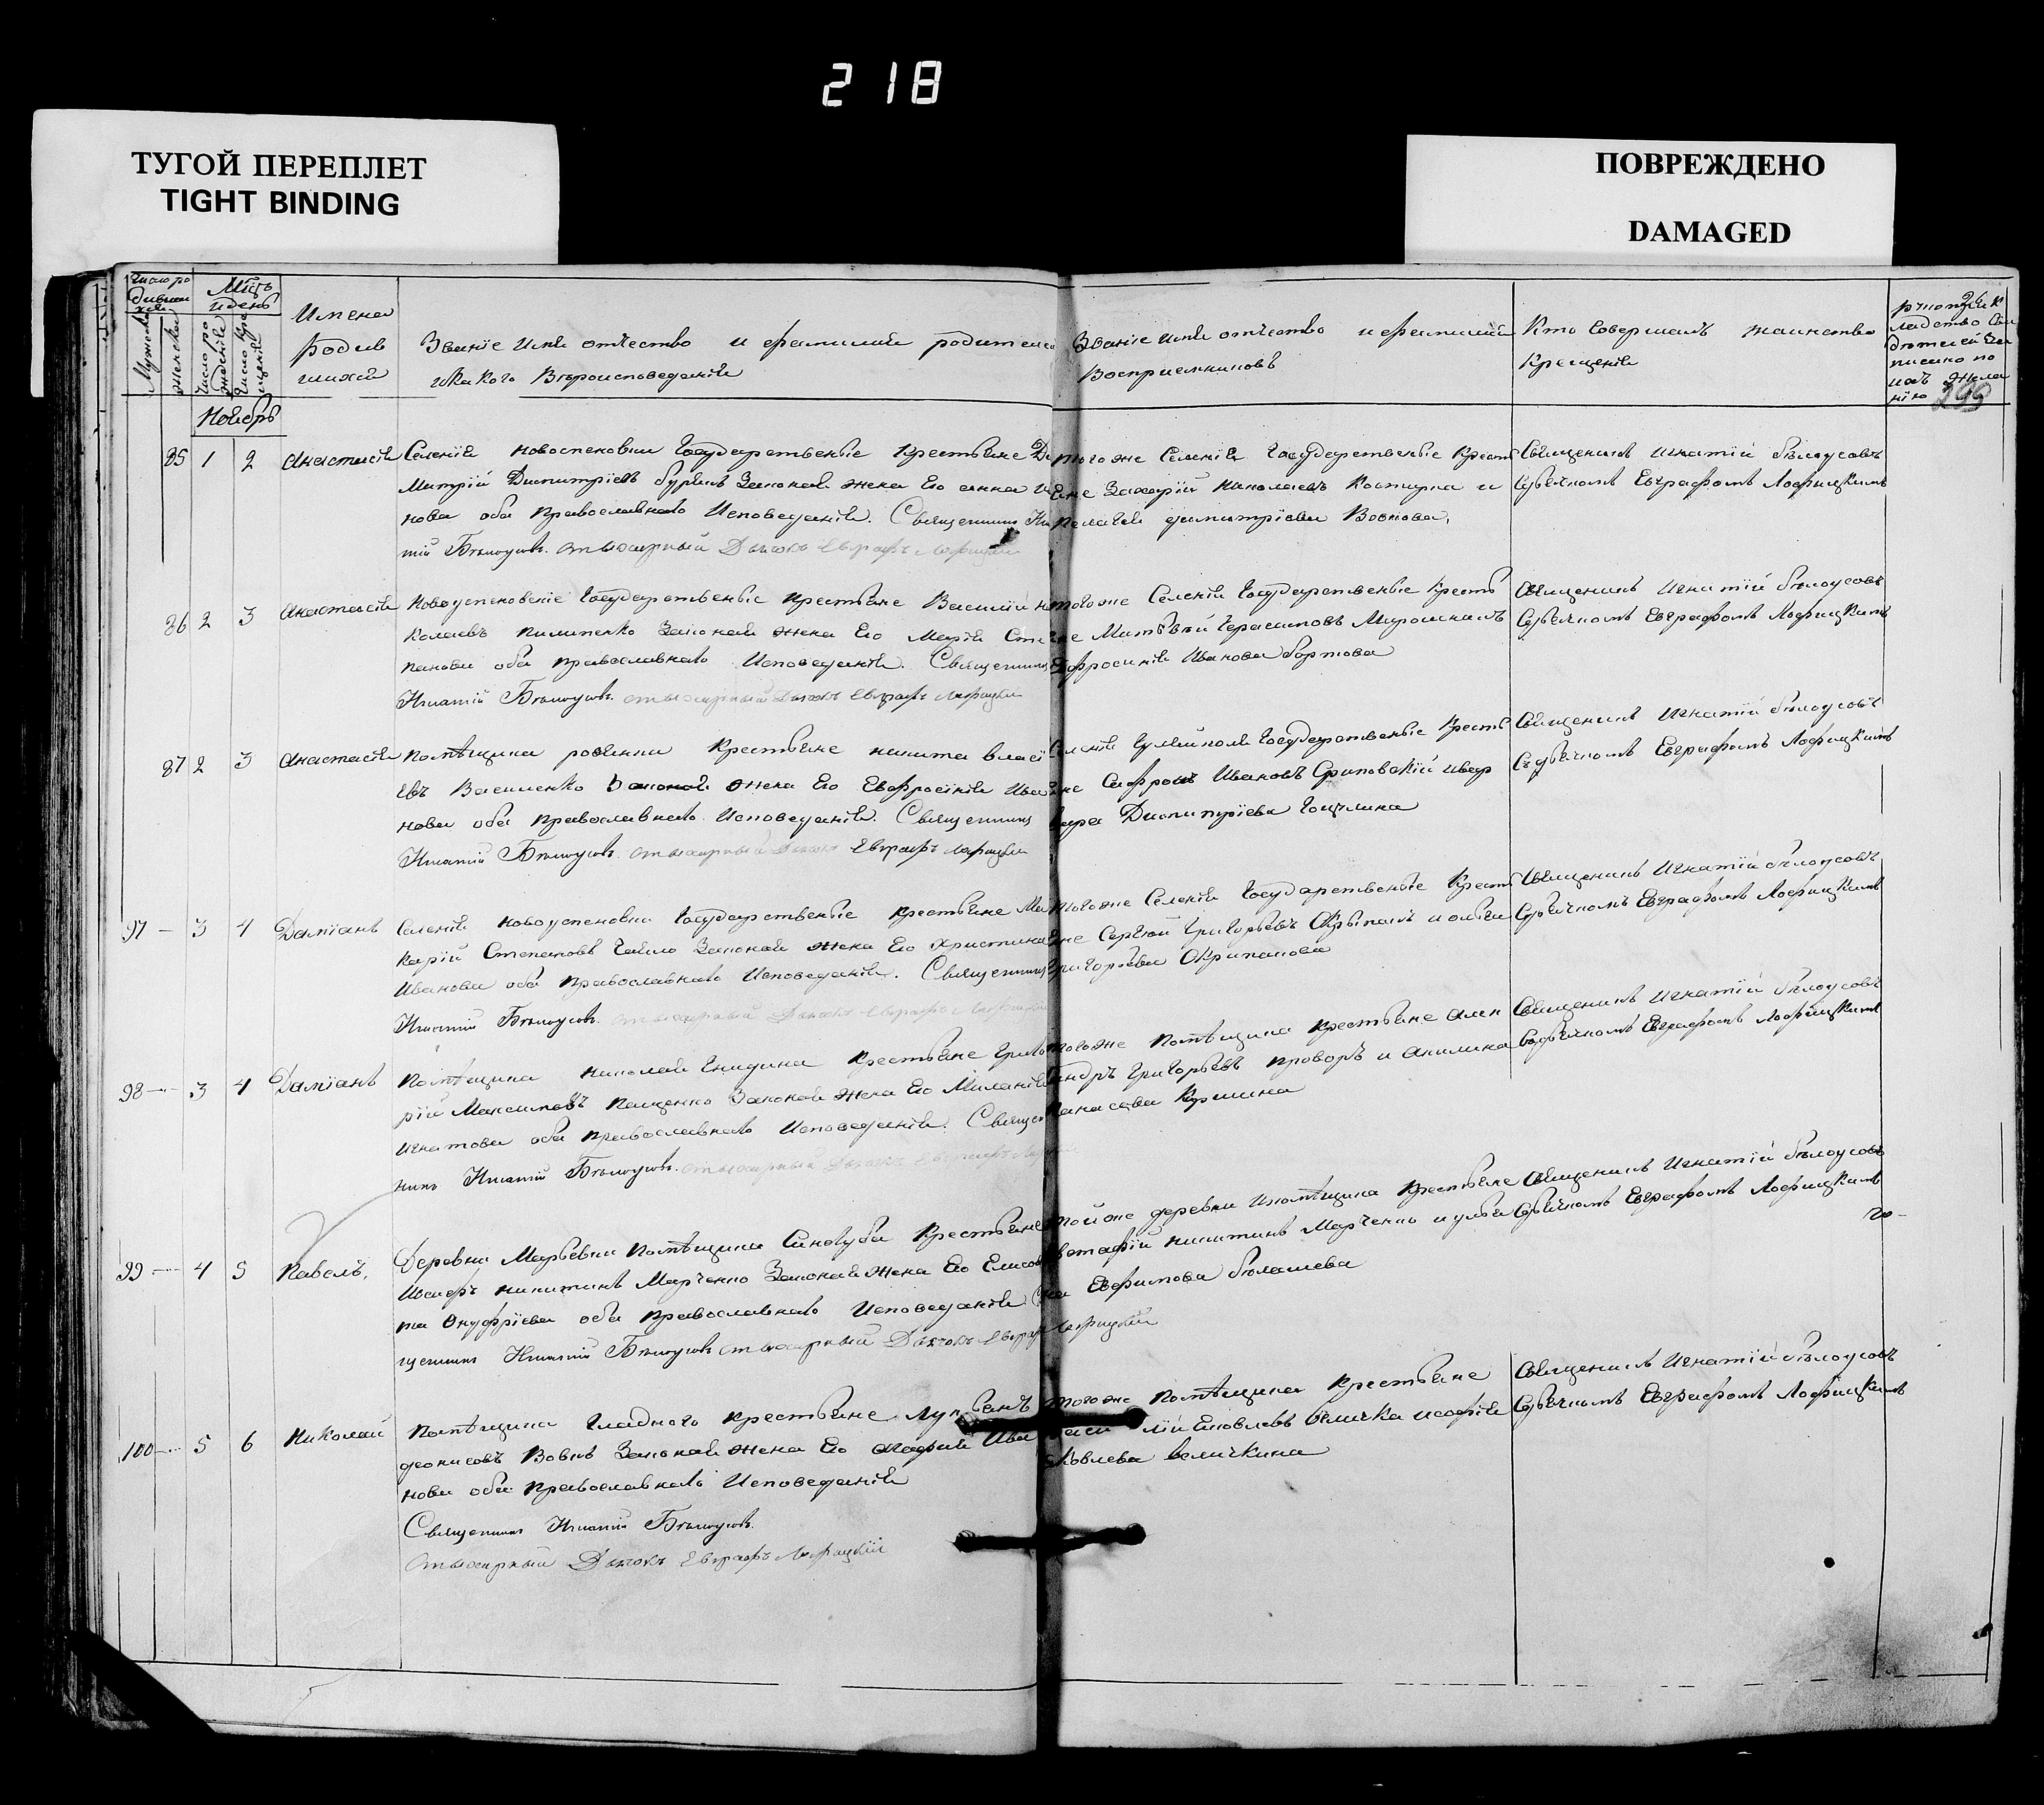 218
ТУГОЙ ПЕРЕПЛЕТ
TIGHT BINDING
ПОВРЕЖДЕНО
DAMAGED
Число ро
дивших
ся
Мужеска
женска
Мѣць
и день
Число ро
жденія
Число кре
щенія
Имена
родив
шихся
Званіе имя отчество и фамилия родителей
и какого Вѣроисповеданія
Званіе имя отчество и фамилий
Восприемниковъ
Кто совершалъ таинство
Крещенія
299
Ноябрь
85 1 2 Анастасія
Селенія новоспеновки Государственые крестьяне Ди
митрій Димитріевъ бурымъ Законая жена Его анна Ива
нова оба православнаго Исповеданія. Священникъ Игна
тій Бѣлоусовъ. Дьячокъ Евграфъ Лофицкий
того же Селенія Государственые крест
яне Захарій николаевъ Костирка и
пелагея димитріева Воснова,
Священникъ Игнатій бѣлоусовъ
Сдьячкомъ Евграфомъ Лофицкимъ
86 2 3 Анастасія
Новоуспеновские Государственые крестьяне Василий ни
колаевъ пилипенко Законая жена Его Марія Сте
панова оба православнаго Исповеданія. Священникъ
Игнатій Бѣлоусовъ. Дьячокъ Евграфъ Лофицкий
того же Селенія Государственые кресть
яне Матвѣй Герасимовъ Мирошникъ
Ефросинія Иванова бортова
Священникъ Игнатій бѣлоусовъ
Сдьячкомъ Евграфомъ Лофицкимъ
87 2 3 Анастасія
помѣщика крестьяне никита власі
евъ Василенко Законая жена Его Евфросінія Ива
нова оба православнаго Исповеданія. Священникъ
Игнатій Бѣлоусовъ Дьячокъ Евграфъ Лофицкий
Селенія Гуляйполя Государственые кресть
яне Сафронъ Ивановъ ивар
вара Димитріева
Священникъ Игнатій бѣлоусовъ
Съдьячкомъ Евграфомъ Лофицкимъ
97 — 3 4 Даміанъ
Селенія новоуспеновки Государственые крестьяне Ма
карій Степановъ Гайло Законая жена Его Христина
Иванова оба православнаго Исповеданія. Священникъ
Игнатій Бѣлоусовъ. Дьячокъ Евграфъ Лофицкий
того же Селенія Государственые крест
яне Сергѣй Григорьевъ и ольга
Григорьева Окрипанова
Священникъ Игнатій бѣлоусовъ
Сдьячкомъ Евграфомъ Лофицкимъ
98 — 3 4 Даміанъ
помѣщика николая крестьяне Григо
рій Максимовъ пащенко Законая жена Его Миланія
игнатова оба православнаго Исповеданія. Священ
никъ Игнатій Бѣлоусовъ. Дьячокъ Евграфъ Лофицкий
того же помѣщика крестьяне алек
сандръ Григорьевъ проворъ и акилина
панасова
Священникъ Игнатій бѣлоусовъ
Сдьячкомъ Евграфомъ Лофицкимъ
99 — 4 5 Павелъ.
Деревни Марьевки помѣщика Синегуба крестьяне
Иосифъ никитинъ Марченко Законая жена Его Елисаве
та Онуфріева оба православнаго Исповеданія Свя
щенникъ Игнатій Бѣлоусовъ Дьячокъ Евграфъ Лофицкий
той же деревни ипомѣщика крестьяне
Евстафій никитинъ Марченко и
на Евфимова
Священникъ Игнатій бѣлоусовъ
Сдьячкомъ Евграфомъ Лофицкимъ
100 — 5 6 Николай
помѣщика Гладкого крестьяне
деонисовъ Вовкъ Законая жена Его агафия Ива
нова оба православнаго Исповеданія
Священникъ Игнатій Бѣлоусовъ.
Дьячокъ Евграфъ Лофицкій
того же помѣщика крестьяне
Яковлевъ величка исофія
Яковлева величкина
Священникъ Игнатій бѣлоусовъ
Сдьячкомъ Евграфомъ Лофицкимъ